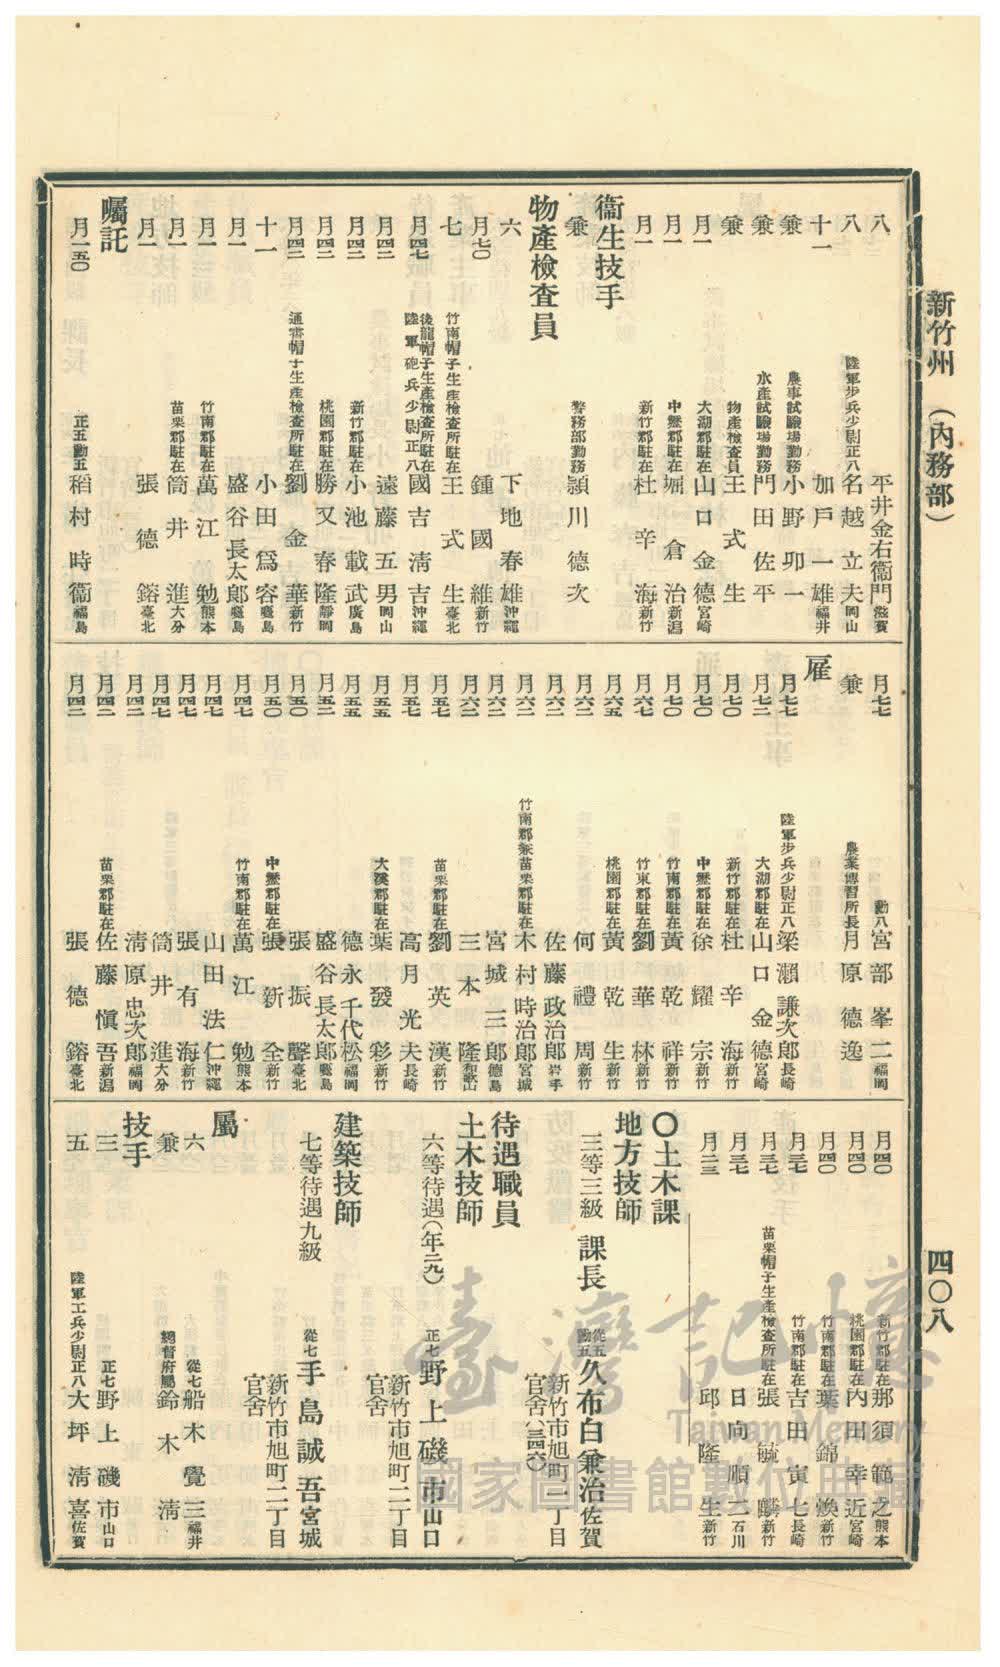 新竹州（內務部）
四〇八
八 平井金右衞門 滋賀
八 陸軍步兵少尉正八 名越立夫 岡山
十一 加戶一雄 福井
兼 農事試驗場勤務 小野卯一
兼 水產試驗場勤務 門田佐平
兼 物產檢查員 王式生
月一 大湖郡駐在 山口金德 宮崎
月一 中壢郡駐在 堀倉治 新潟
月一 新竹郡駐在 杜辛海 新竹
衞生技手
兼 警務部勤務 潁川德次
物產檢查員
六 下地春雄 沖繩
月七〇 鍾國維 新竹
七 竹南帽子生產檢查所駐在 王式生 臺北
月四七 後龍帽子生產檢查所駐在 陸軍砲兵少尉正八 國吉淸吉 沖繩
月四二 遠藤五男 岡山
月四二 新竹郡駐在 小池載武 廣島
月四二 桃園郡駐在 勝又春隆 靜岡
月四二 通霄帽子生產檢查所駐在 劉金華 新竹
十一 小田爲容 鹿兒島
月一 盛谷長太郞 鹿兒島
月一 竹南郡駐在 萬江勉 熊本
月一 苗栗郡駐在 筒井進 大分
月一 張德鎔 臺北
囑託
月一五〇 正五勳五 稻村時衞 福島
月七七 勳八 宮部峯二 福岡
兼 農業傳習所長 月原德逸
雇
月七七 陸軍步兵少尉正八 梁瀨謙次郞 長崎
月七二 大湖郡駐在 山口金德 宮崎
月七〇 新竹郡駐在 杜辛海 新竹
月七〇 中壢郡駐在 徐耀宗 新竹
月七〇 竹南郡駐在 黃乾祥 新竹
月六七 竹東郡駐在 劉華林 新竹
月六五 桃園郡駐在 黃乾生 新竹
月六二 何禮周 新竹
月六二 佐藤政治郞 岩手
月六二 竹南郡兼苗栗郡駐在 木村時治郞 宮城
月六二 宮城三郞 德島
月六二 三本隆 和歌山
月五七 苗栗郡駐在 劉英漢 新竹
月五七 高月光夫 長崎
月五五 大溪郡駐在 葉發彩 新竹
月五五 德永千代松 福岡
月五二 盛谷長太郞 鹿兒島
月五〇 張振聲 臺北
月五〇 中壢郡駐在 張新全 新竹
月四七 竹南郡駐在 萬江勉 熊本
月四七 山田法仁 沖繩
月四七 張有海 新竹
月四七 筒井進 大分
月四二 淸原忠次郞 福岡
月四二 苗栗郡駐在 佐藤愼吾 新潟
月四二 張德鎔 臺北
月四〇 新竹郡駐在 那須範之 熊本
月四〇 桃園郡駐在 內田幸近 宮崎
月四〇 竹南郡駐在 葉錦煥 新竹
月三七 竹南郡駐在 吉田寅七 長崎
月三七 苗栗帽子生產檢查所駐在 張毓麟 新竹
月三七 日向順二 石川
月二三 邱隆生 新竹
〇土木課
地方技師
三等三級 課長 從五勳五 久布白兼治 佐賀
新竹市旭町一丁目
官舍(三四六)
待遇職員
土木技師
六等待遇(年一九) 正七 野上磯市 山口
新竹市旭町二丁目
官舍
建築技師
七等待遇九級 從七 手島誠吾 宮城
新竹市旭町二丁目
官舍
屬
六 從七 船木覺三 福井
兼 總督府屬 鈴木淸
技手
三 正七 野上磯市 山口
五 陸軍工兵少尉正八 大坪淸喜 佐賀
臺灣記憶
Taiwan Memory
國家圖書館數位典藏